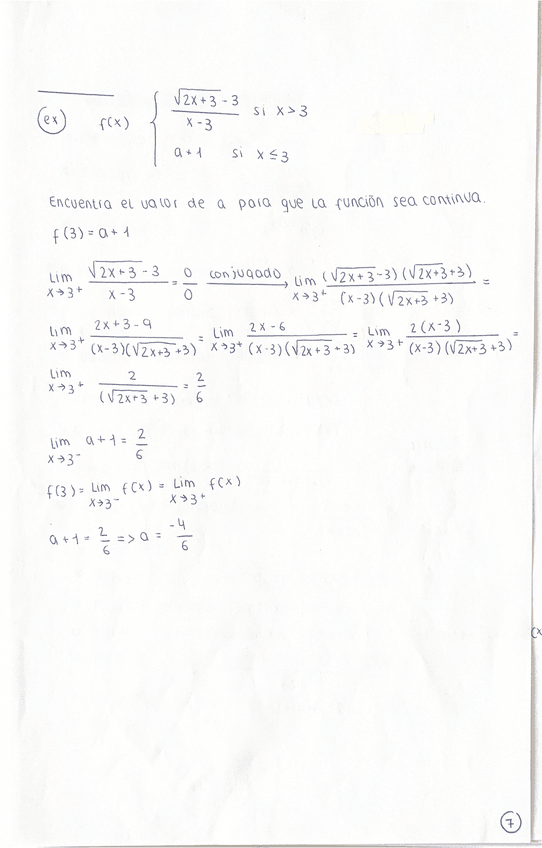 ex f(x) { (√(2x+3) - 3)/(x-3) si x>3
a+1 si x≤3
Encuentra el valor de a para que la función sea continua.
f(3) = a+1
lim x→3⁺ (√(2x+3) - 3)/(x-3) = 0/0 conjugado → lim x→3⁺ ((√(2x+3) -3)(√(2x+3) +3))/((x-3)(√(2x+3) +3)) =
lim x→3⁺ (2x+3-9)/((x-3)(√(2x+3) +3)) = lim x→3⁺ (2x-6)/((x-3)(√(2x+3) +3)) = lim x→3⁺ (2(x-3))/((x-3)(√(2x+3) +3)) =
lim x→3⁺ 2/((√(2x+3) +3)) = 2/6
lim x→3⁻ a+1 = 2/6
f(3) = lim x→3⁻ f(x) = lim x→3⁺ f(x)
a+1 = 2/6 => a = -4/6
(x
7